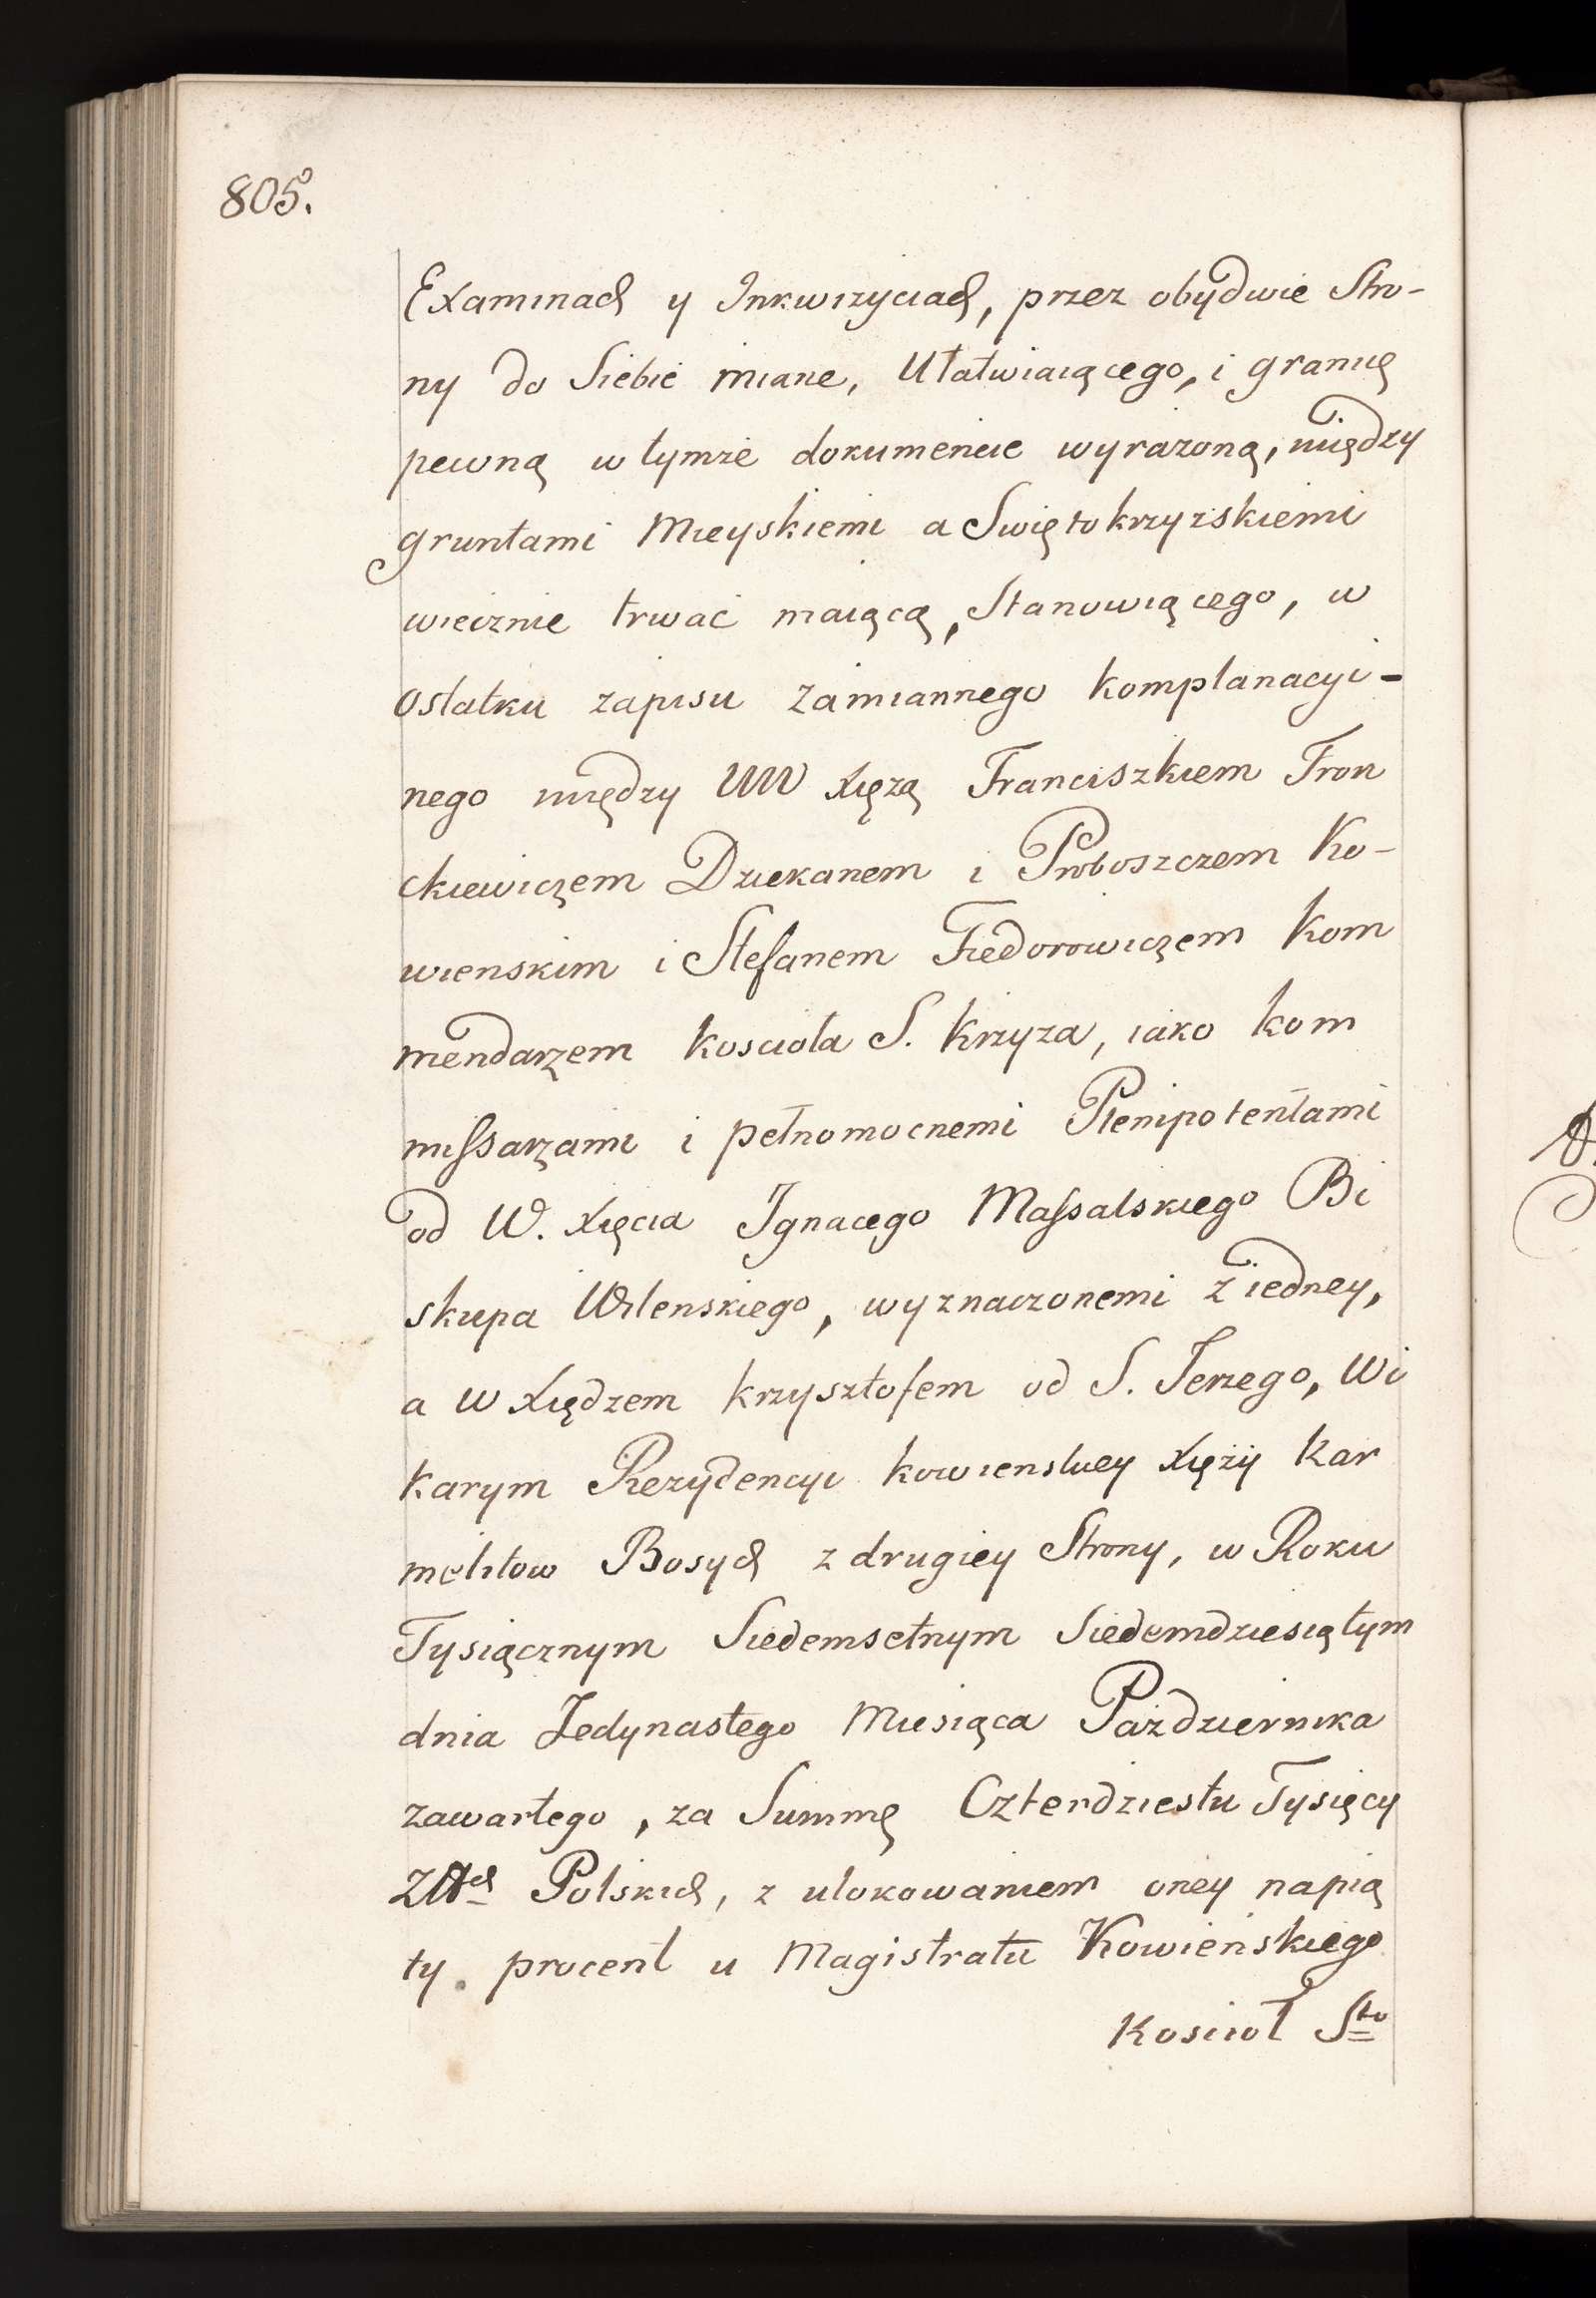 805.
Examinach y Inkwizyciach, przez obydwie Stro-
ny do Siebie miane, Ułatwiaiącego, i granię
pewną w tymże dokumencie wyrażoną, między
gruntami Mieyskiemi a Swiętokrzyzskiemi
wiecznie trwać maiącą, Stanowiącego, w
ostatku zapisu zamiannego komplanacyi-
nego między WW Xięzą Franciszkiem Fron
ckiewiczem Dziekanem i Proboszczem Ko-
wienskim i Stefanem Fiedorowiczem Kom
mendarzem Kosciola S. Krzyza, iako kom
missarzami i pełnomocnemi Plenipotentami
od W. Xięcia Ignacego Massalskiego Bi
skupa Wilenskiego, wyznaczonemi z iedney,
a W Xiędzem Krzysztofem od S. Jerzego, Wi
karym Rezydencyi kowienskiey Xięży Kar
melitow Bosych z drugiey Strony, w Roku
Tysiącznym Siedemsetnym Siedemdziesiątym
dnia Jedynastego Miesiąca Października
zawartego, za Summę Czterdziestu Tysięcy
Złłch Polskich, z ulokowaniem oney na pią
ty procent u Magistratu Kowieńskiego
Koscioł Sto